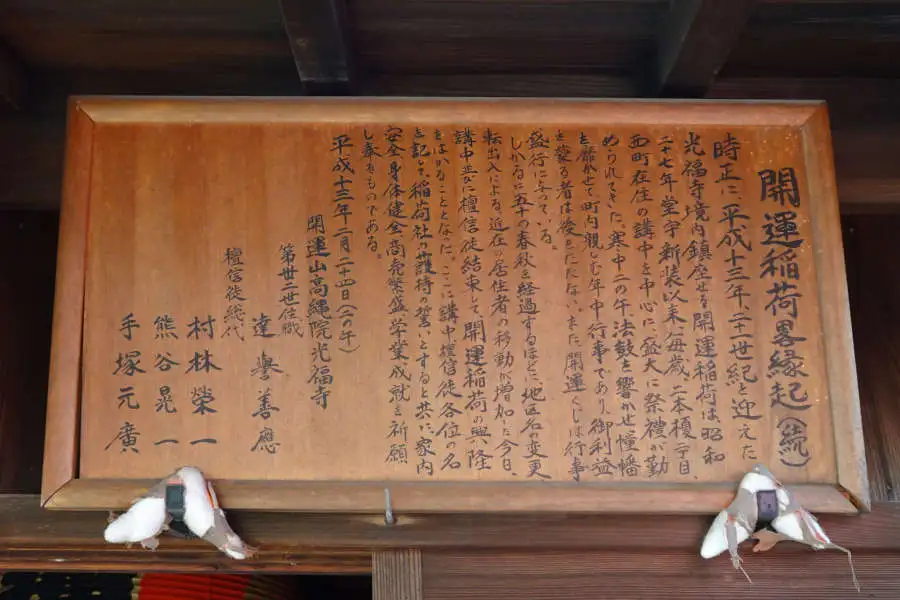 開運稲荷畧縁起(続)
時正に平成十三年、二十一世紀を迎えた
光福寺境内鎮座せる開運稲荷は、昭和
二十七年堂宇新装以来、毎歳、二本榎一丁目、
西町在住の講中を中心に、盛大に祭禮が勤
められてきた。寒中二の午、法鼓を響かせ幢幡
を靡かせて町内親しむ年中行事であり、御利益
を蒙る者は後をたたない。また開運くじは行事
盛行になっている。
しかるに五十の春秋を経過するほどに地区名の変更
転出入による、近在の居住者の移動が増加した今日、
講中並びに檀信徒結束して、開運稲荷の興隆
をはかることとなった。ここに講中檀信徒各位の名
を記して稲荷社の護持の誓いとすると共に、家内
安全身体健全商売繁盛学業成就を祈願
し奉るものである。
平成十三年二月二十四日(二の午)
開運山高縄院光福寺
第丗二世住職
達譽善應
檀信徒総代
村林榮一
熊谷晃一
手塚元廣